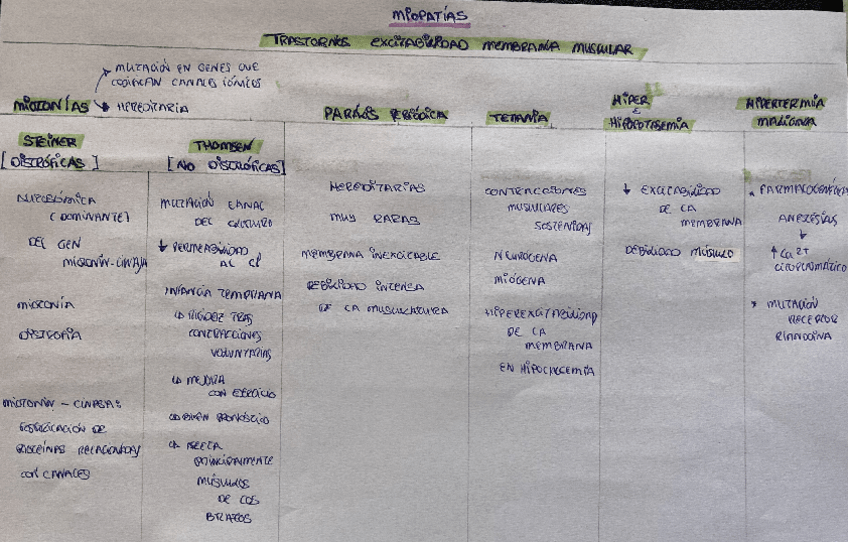 MIOPATÍAS
TRASTORNOS EXCITABILIDAD MEMBRANA MUSCULAR
MIOTONÍAS
MUTACIÓN EN GENES QUE
CODIFICAN CANALES IÓNICOS
HEREDITARIA
STEINER
[DISTRÓFICAS]
AUTOSÓMICA
(DOMINANTE)
DEL GEN
MIOTONÍN-CINASA
MIOTONÍA
DISTROFIA
MIOTONÍN - CINASA:
FOSFORILACIÓN DE
PROTEÍNAS RELACIONADAS
CON CANALES
THOMSEN
[NO DISTRÓFICAS]
MUTACIÓN CANAL
DEL CLORURO
↓ PERMEABILIDAD
AL Cl
INFANCIA TEMPRANA
RIGIDEZ TRAS
CONTRACCIONES
VOLUNTARIAS
MEJORA
CON EJERCICIO
BUEN PRONÓSTICO
AFECTA
PRINCIPALMENTE
MÚSCULOS
DE LOS
BRAZOS
PARÁLISIS PERIÓDICA
HEREDITARIAS
MUY RARAS
MEMBRANA INEXCITABLE
DEBILIDAD INTENSA
DE LA MUSCULATURA
TETANIA
CONTRACCIONES
MUSCULARES
SOSTENIDAS
NEURÓGENA
MIÓGENA
HIPEREXCITABILIDAD
DE LA
MEMBRANA
EN HIPOCALCEMIA
HIPER
E
HIPOPOTASEMIA
↓ EXCITABILIDAD
DE LA
MEMBRANA
DEBILIDAD MÚSCULO
HIPERTERMIA
MALIGNA
FARMACOGENÉTICA
ANESTESIAS
↓
↑ Ca2+
CITOPLASMÁTICO
MUTACIÓN
RECEPTOR
RIANODINA